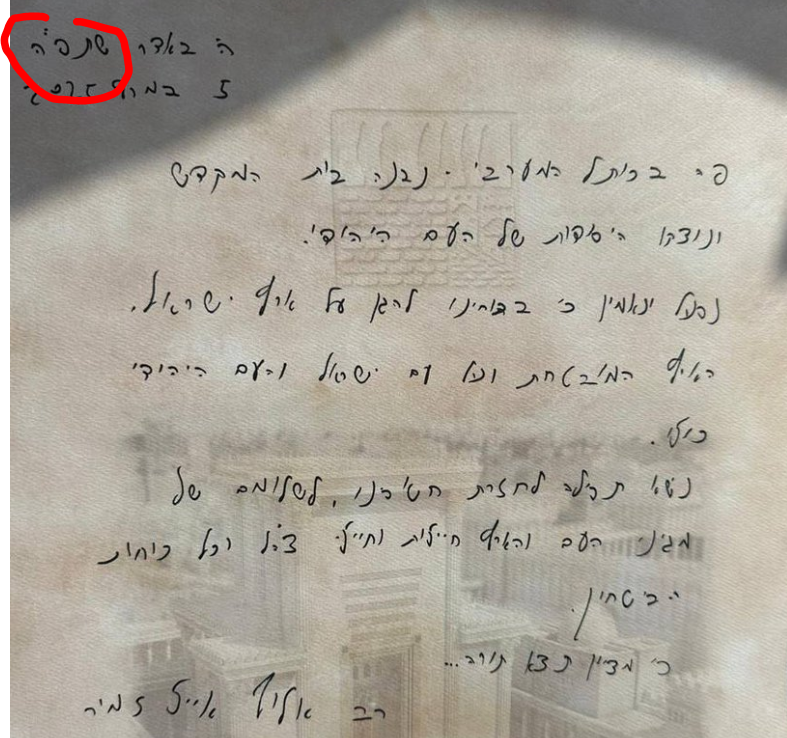 ה' באדר שתפ"ה
5 במרץ
פה בכותל המערבי - נבנה בית המקדש
ונוצקו היסודות של העם היהודי.
ונאמין כי בכוחינו להגן על ארץ ישראל,
הארץ המובטחת עם ישראל והעם היהודי
כולו.
נשא תפילה לחזרת חטופינו, לשלומם של
מגיני העם והארץ חיילות וחיילי צה"ל וכל כוחות
הביטחון.
כי מציון תצא תורה...
רב אלוף אייל זמיר